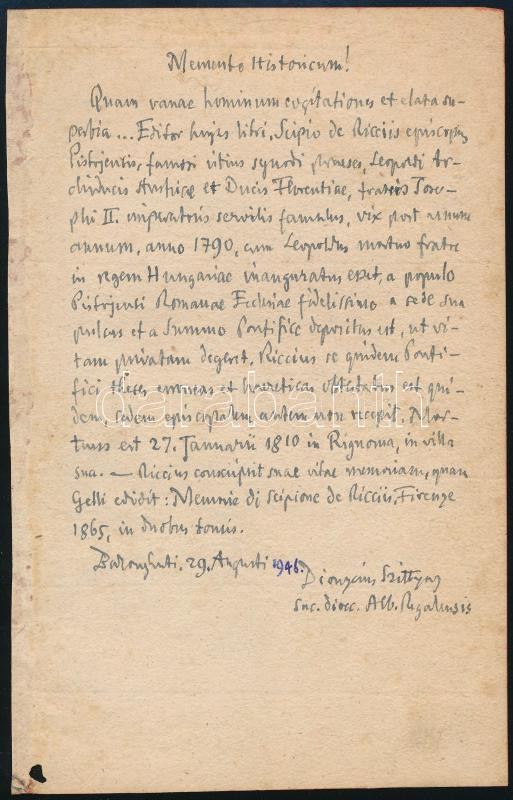 Memento Historicum!
Quam vanae hominum cogitationes et elata su-
perbia ... Editor hujus libri, Scipio de Ricciis episcopus
Pistojensis, famosi illius synodi praeses, Leopoldi Ar-
chiducis Austriae et Ducis Florentiae, fratris Jose-
phi II. imperatoris servilis famulus, vix post unum
annum, anno 1790, cum Leopoldus mortuo fratre
in regem Hungariae inauguratus esset, a populo
Pistojensi Romanae Ecclesiae fidelissimo a sede sua
pulsus et a Summo Pontifice depositus est, ut vi-
tam privatam degeret. Riccius se quidem Ponti-
fici theses erroneas et haereticas est qui-
dem, sedem episcopalem autem non recepit. Mor-
tuus est 27. Januarii 1810 in Rignona, in villa
sua. — Riccius conscripsit suae vitae memoriam, quam
Gelli edidit: Memorie di Scipione de Ricciis, Firenze
1865, in duobus tomis.
29. Augusti 1946.
Dionysius Szittyay
sac. dioec. Alb. Regalensis
darabanth